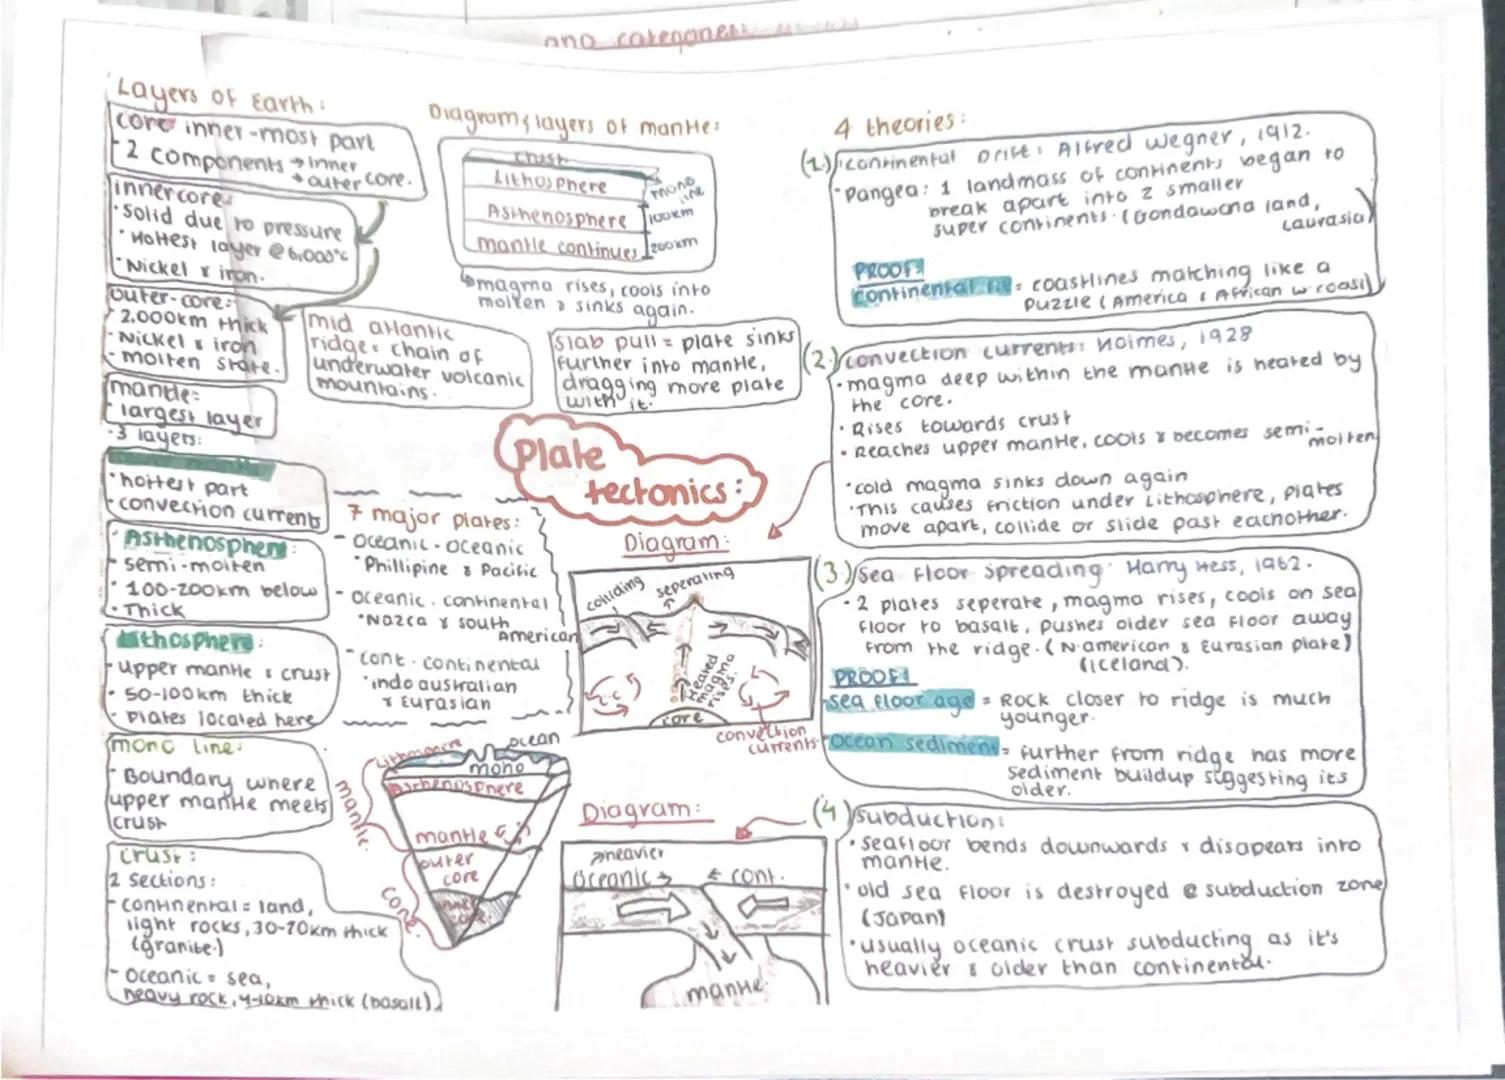 and categories:
Layers of Earth:
core inner-most part
- 2 components → inner
→ outer core.
inner core:
• Solid due to pressure
• Hottest layer @ 6,000°c
• Nickel & iron.
outer-core:
2,000km thick
- Nickel & iron
- molten state.
mantle:
- largest layer
- 3 layers:
• hottest part
- convection current
• Asthenosphere:
- semi-molten
• 100-200km below
• Thick
Lithosphere:
- upper mantle & crust
• 50-100km thick
- Plates located here
mono line:
- Boundary where
upper mantle meets
crust
crust:
2 sections:
- continental = land,
light rocks, 30-70km thick
(granite.)
- Oceanic = sea,
heavy rock, 4-10km thick (basalt)
Diagram & layers of mantle:
crust
Lithosphere
Asthenosphere
mantle continues
mono
line
100km
200km
magma rises, cools into
molten & sinks again.
mid atlantic
ridge: chain of
underwater volcanic
mountains.
Slab pull = plate sinks
further into mantle,
dragging more plate
with it.
Plate
tectonics:
7 major plates:
- Oceanic - Oceanic
• Phillipine & Pacific
- Oceanic . continental
• Nazca & south
American
- cont . continental
• indo australian
& Eurasian
Diagram:
colliding
seperating
Heated
magma
rises.
c.c
core
convection
currents
Lithosphere
ocean
mono
Asthenosphere
mantle
mantle.
outer
core
inner
core
core.
Diagram:
heavier
Oceanic →
← cont.
mantle
4 theories:
(1.) continental Drift: Alfred Wegner, 1912.
• Pangea: 1 landmass of continents began to
break apart into 2 smaller
super continents. (Gondawana land,
Laurasia)
PROOF:
continental fit = coastlines matching like a
puzzle (America & African w coast)
(2.) convection currents: Holmes, 1928
• magma deep within the mantle is heated by
the core.
• Rises towards crust
• Reaches upper mantle, cools & becomes semi-
molten
• cold magma sinks down again
• This causes friction under Lithosphere, plates
move apart, collide or slide past eachother.
(3.) Sea Floor Spreading: Harry Hess, 1962.
• 2 plates seperate, magma rises, cools on sea
floor to basalt, pushes older sea floor away
from the ridge. (N.american & Eurasian plate)
(iceland).
PROOF:
sea floor age = Rock closer to ridge is much
younger.
Ocean sediment = further from ridge has more
sediment buildup suggesting its
older.
(4) subduction:
• seafloor bends downwards & disapears into
mantle.
• old sea floor is destroyed @ subduction zone
(Japan)
• usually oceanic crust subducting as it's
heavier & older than continental.